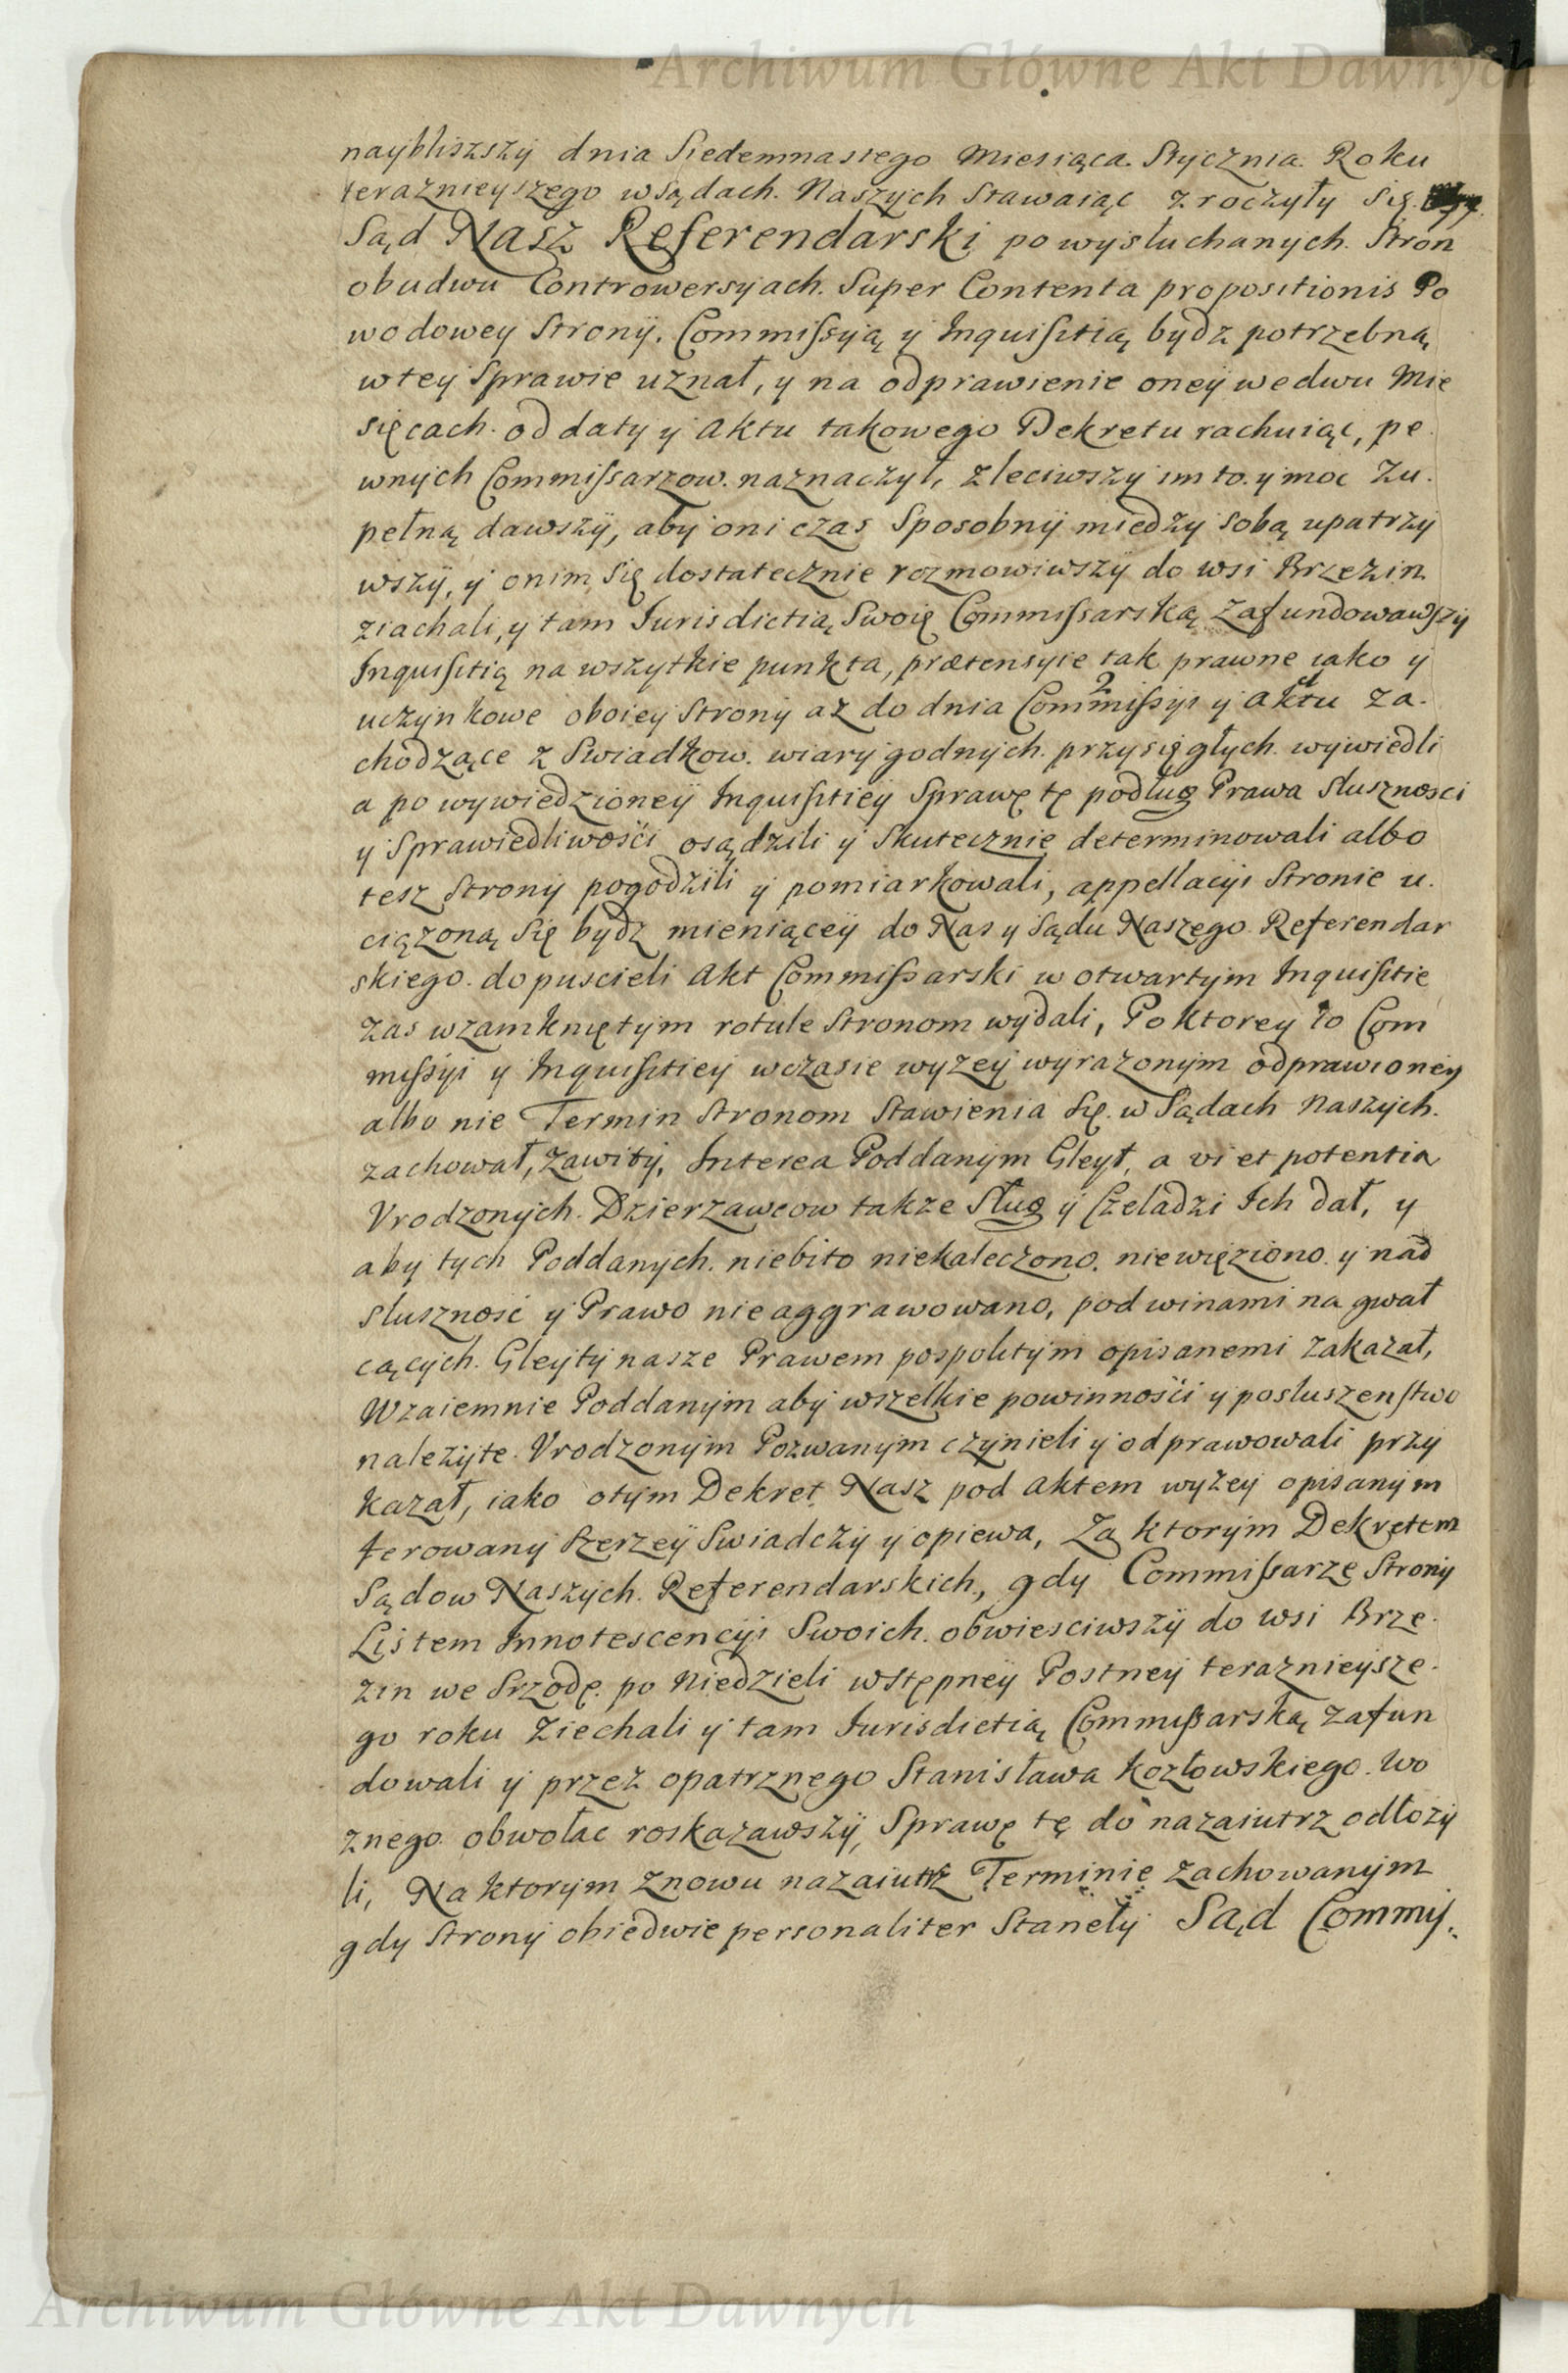 Archiwum Główne Akt Dawnych
naybliszszy dnia Siedemnastego Miesiąca Stycznia Roku
teraznieyszego w Sądach Naszych Stawaiąc zroczyły Się.
Sąd Nasz Referendarski po wysłuchanych Stron
obudwu Controwersyach. Super Contenta propositionis Po
wodowey Strony. Commissyią y Inquisitią bydz potrzebną
w tey Sprawie uznał, y na odprawienie oney we dwu Mie
sięcach od daty y Aktu takowego Dekretu rachuiąc, pe
wnych Commissarzow naznaczył, zleciwszy im to y moc Zu.
pełną dawszy, aby oni czas Sposobny miedzy sobą upatrzy
wszy, y onim Się dostatecznie rozmowiwszy do wsi Brzezin
ziachali, y tam Iurisdictią Swoię Commissarską Zafundowawszy
Inquisitią na wszytkie punkta, prætensyie tak prawne iako y
uczynkowe oboiey Strony az do dnia Commissyi y Aktu Za.
chodzące z Swiadkow wiary godnych przysięgłych wywiedli
a po wywiedzioney Inquisitiey Sprawę tę podług Prawa Slusznosci
y Sprawiedliwości osądzili y Skutecznie determinowali albo
tesz Strony pogodzili y pomiarkowali, appellacyi Stronie u.
ciązoną Się bydz mieniącey do Nas y Sądu Naszego Referendar
skiego dopuscieli Akt Commissarski w otwartym Inquisitie
Zas w zamknętym rotule Stronom wydali, Po ktorey to Com
missyi y Inquisitiey w czasie wyzey wyrazonym odprawioney
albo nie Termin Stronom Stawienia Się w Sądach Naszych.
zachował, Zawity, Interea Poddanym Gleyt, a vi et potentia
Vrodzonych Dzierzawcow takze Sług y Czeladzi Ich dał, y
aby tych Poddanych niebito niekaleczono niewięziono y nad
slusznosć y Prawo nie aggrawowano, pod winami na gwał
cących Gleyty nasze Prawem pospolitym opisanemi Zakazał,
Wzaiemnie Poddanym aby wszelkie powinności y posluszenstwo
nalezyte Vrodzonym Pozwanym czynieli y odprawowali przy
kazał, iako otym Dekret Nasz pod Aktem wyzey opisanym
ferowany szerzey Swiadczy y opiewa, Za ktorym Dekretem
Sądow Naszych Referendarskich, gdy Commissarze Strony
Listem Innotescencyi Swoich obwiesciwszy do wsi Brze.
zin we Srzodę po Niedzieli wstępney Postney teraznieysze.
go roku Ziechali y tam Iurisdictią Commissarską Zafun
dowali y przez opatrznego Stanisława Kozłowskiego Wo
znego obwołac roskazawszy, Sprawę tę do nazaiutrz odłozy
li, Na ktorym znowu nazaiutrz Terminie Zachowanym
gdy Strony obiedwie personaliter Stanęły Sąd Commis.
Archiwum Główne Akt Dawnych